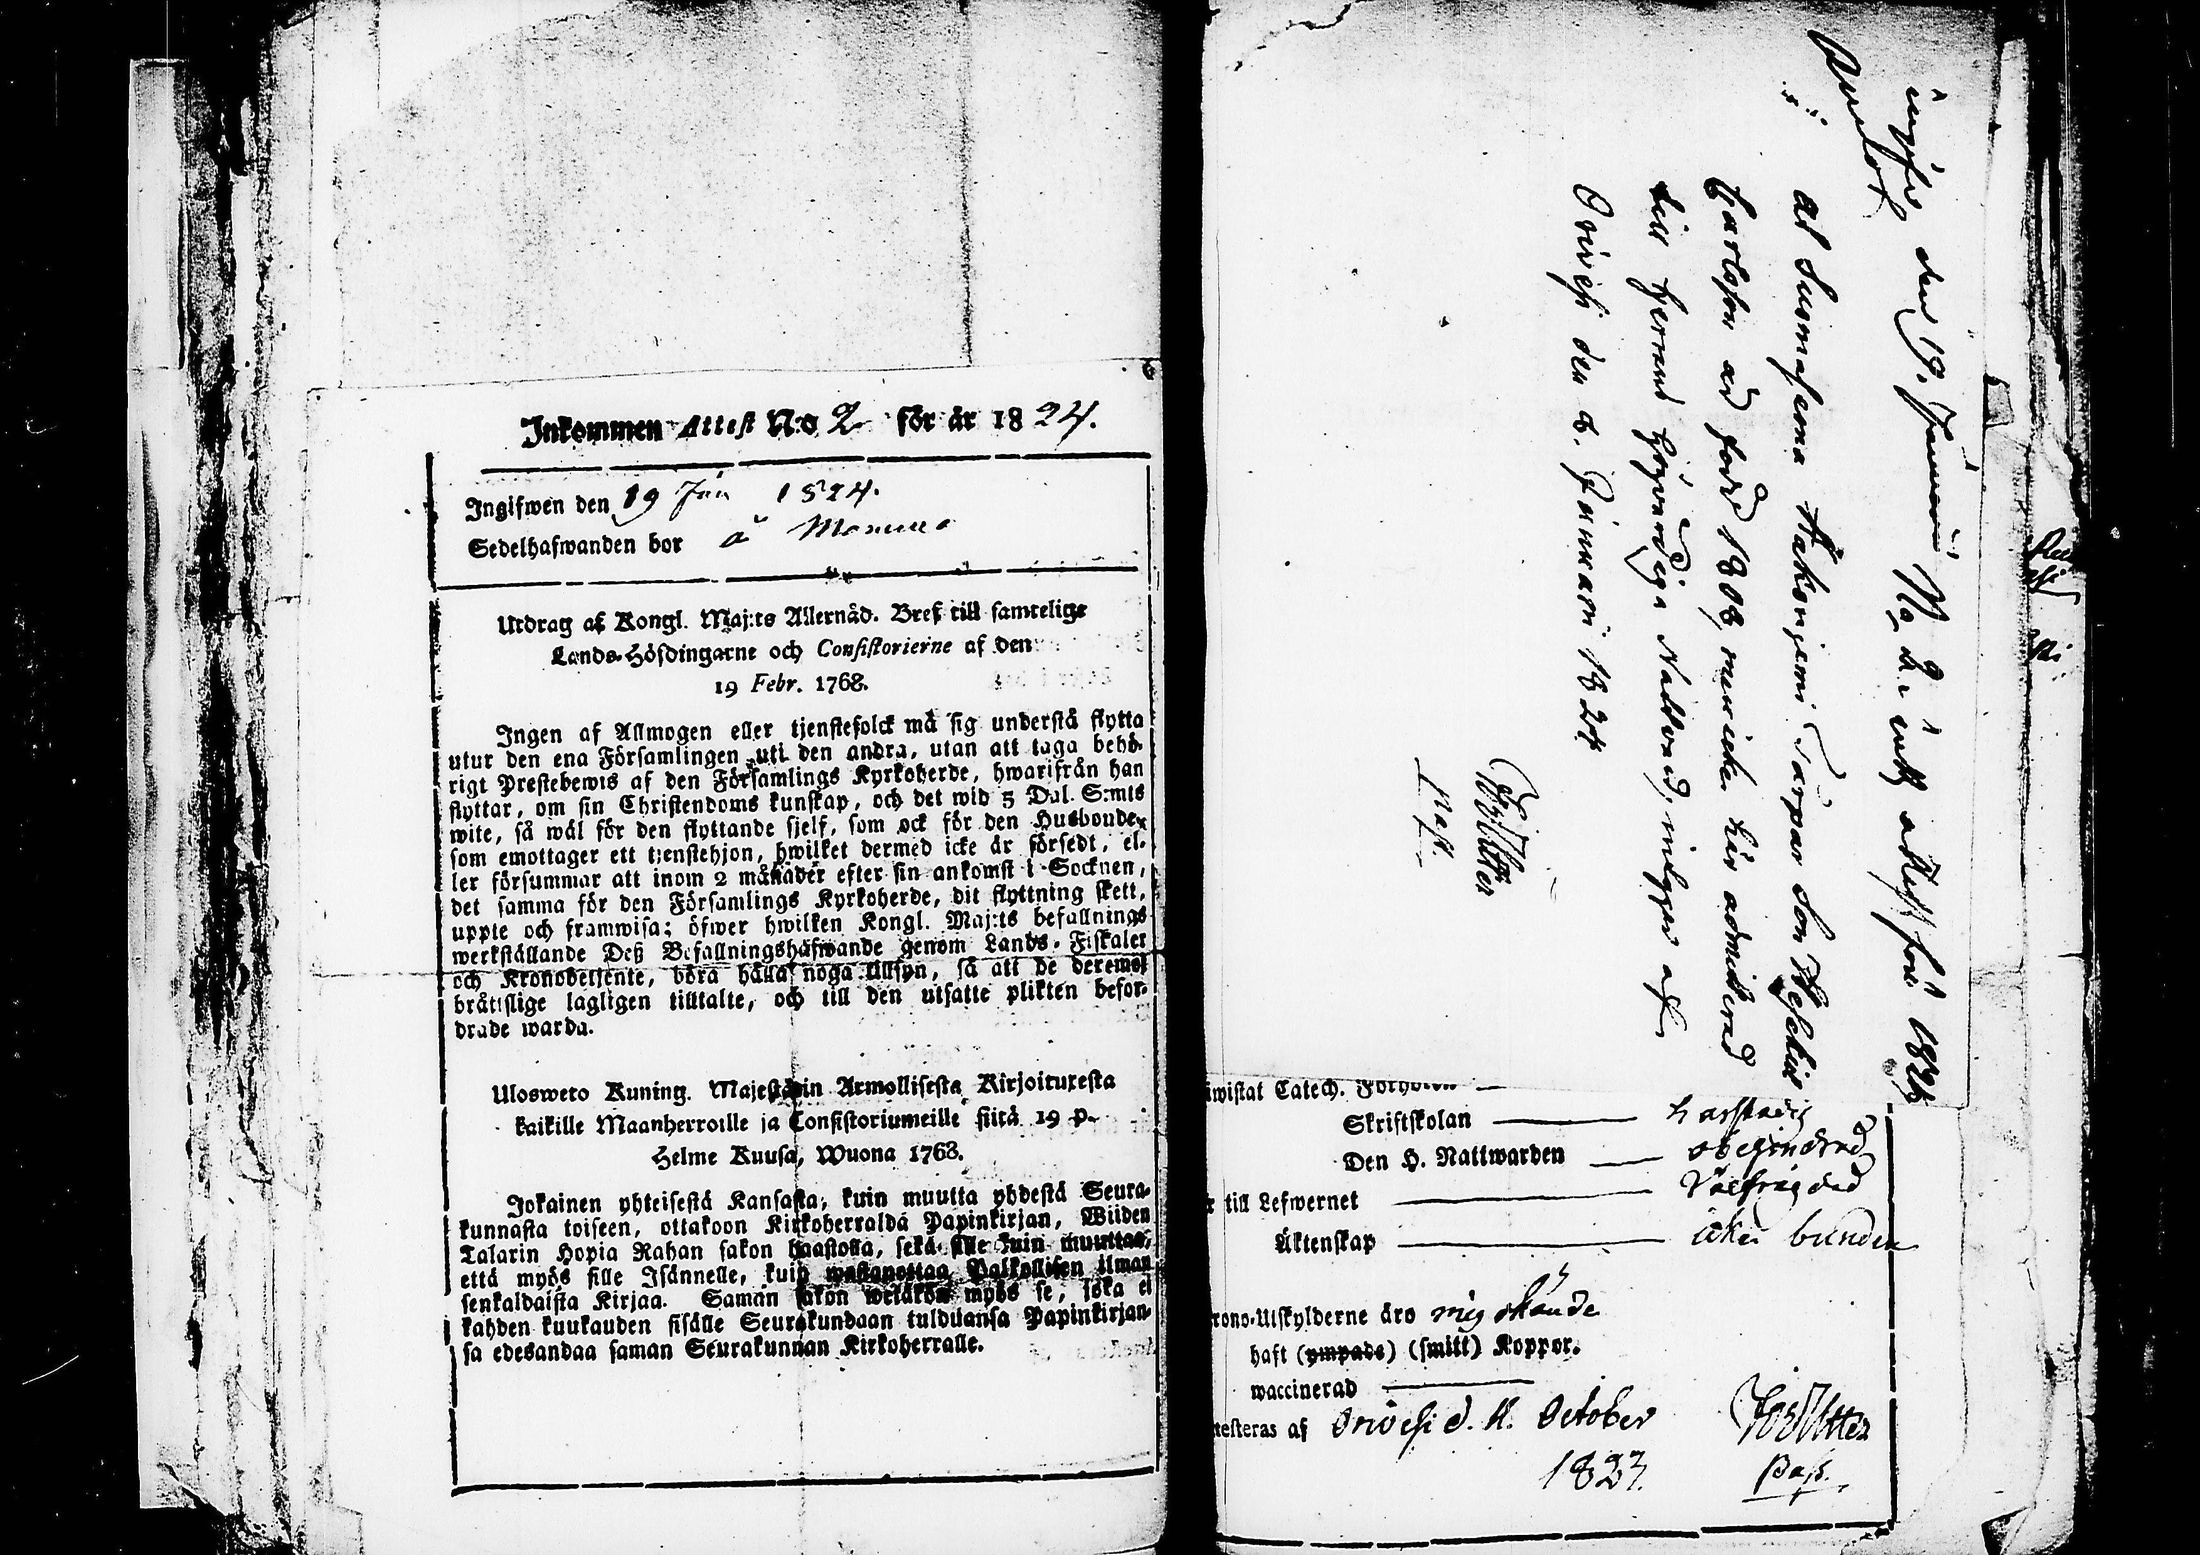 Inkommen Attest N:o 2 för år 1824.
Ingifwen den 19 Jan 1824.
Sedelhafwanden bor å
Utdrag af Kongl. Maj:ts Allernåd. Bref till samtelige
Lands-Höfdingarne och Consistorierne af den
19 Febr. 1768.
Ingen af Allmogen eller tjenstefolck må sig understå flytta
utur den ena Församlingen uti den andra, utan att taga behö-
rigt Prestebewis af den Församlings Kyrkoherde, hwarifrån han
flyttar, om sin Christendoms kunskap, och det wid 5 Dal. S:mts
wite, så wäl för den flyttande sjelf, som ock för den Husbonde,
som emottager ett tjenstehjon, hwilket dermed icke är försedt, el-
ler försummar att inom 2 månader efter sin ankomst i Socknen,
det samma för den Församlings Kyrkoherde, dit flyttning skett,
uppte och framwisa; öfwer hwilken Kongl. Maj:ts befallnings
werkställande Deß Befallningshafwande genom Lands-Fiskaler
och Kronobetjente, böra hålla noga tillsyn, så att de deremot
bråttslige lagligen tilltalte, och till den utsatte plikten befor-
drade warda.
Ulosweto Kuning. Majestätin Armollisesta Kirjoituxesta
kaikille Maanherroille ja Consistoriumeille siitä 19 p.
Helme Kuusa, Wuona 1768.
Jokainen yhteisestä Kansasta, kuin muutta yhdestä Seura-
kunnasta toiseen, ottakoon Kirkoherralda Papinkirjan, Wiiden
Talarin Hopia Rahan sakon haastolla, sekä sille kuin muuttaa,
että myös sille Isännelle, kuin wastanottaa Palkollisen ilman
senkaldaista Kirjaa. Saman sakon wetäköön myös se, joka ei
kahden kuukauden sisälle Seurakundaan tulduansa Papinkirjan-
sa edesandaa saman Seurakunnan Kirkoherralle.
ingifv. den 19. Januari N:o 2 i intt. attest för 1824
at Suomasema Hakosjerni Torpar Son
Carlsson är född 1808, men icke här admitterad
till Herrans högvärdiga Nattvard, intygar af
Orivesi den 2. Januari 1824
Past.
wistat Catech. Förhören
Skriftskolan
Den H. Nattwarden obehindrad
till Lefwernet Välfrägdad
Äktenskap icke bunden
rono-Utskylderne äro
haft (ympade) (smitt) Koppor.
waccinerad
testeras af Orivesi d. 11. October
1823. Past.